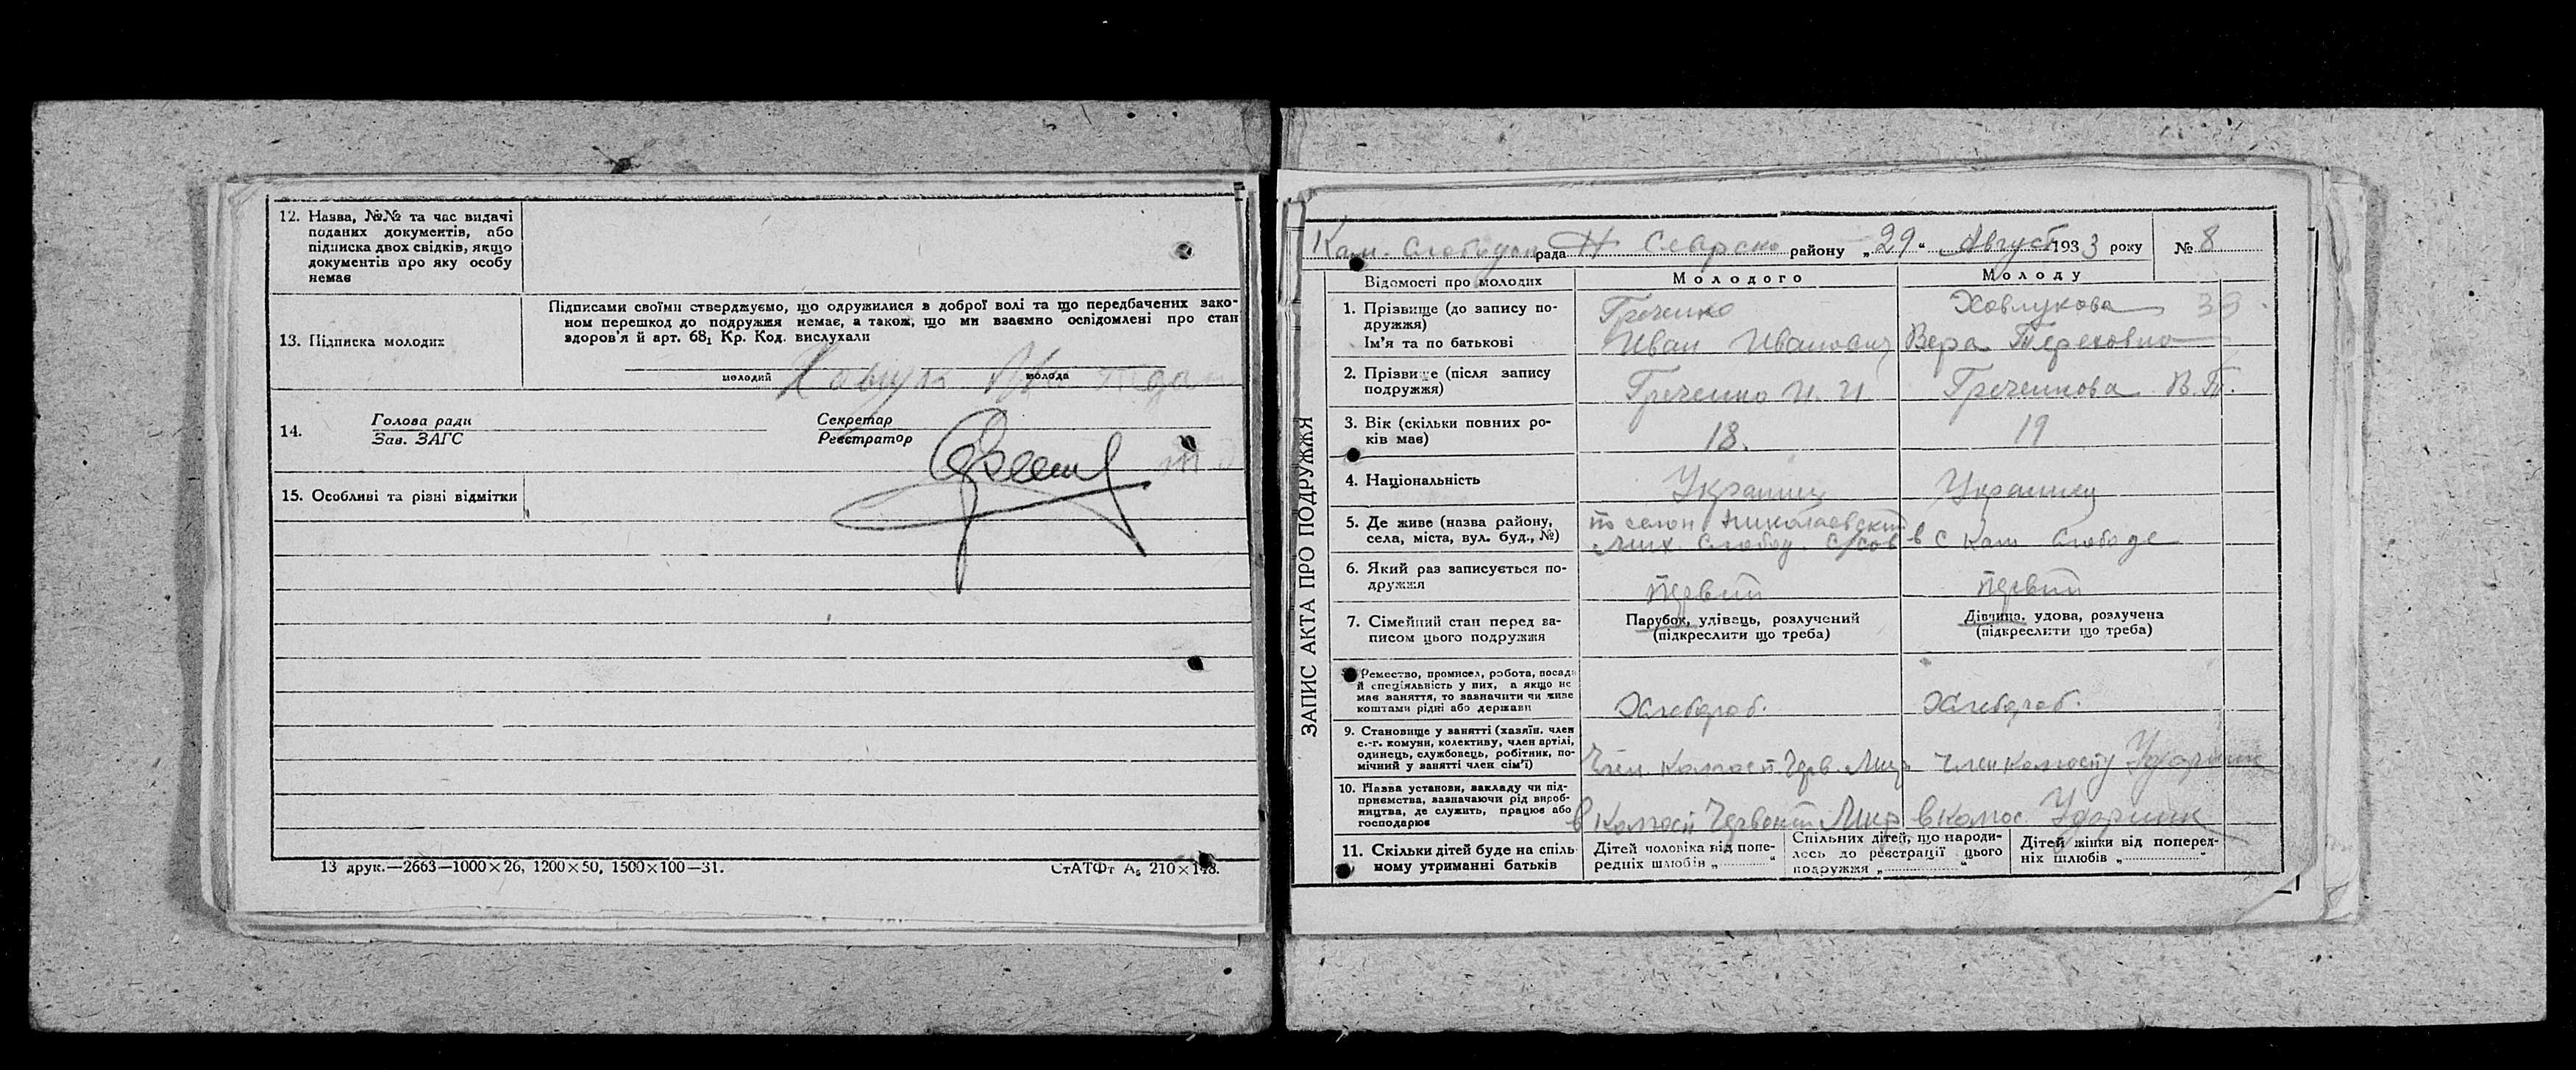 12. Назва, №№ та час видачі
поданих документів, або
підписка двох свідків, якщо
документів про яку особу
немає
13. Підписка молодих
Підписами своїми стверджуємо, що одружилися в доброї волі та що передбачених зако-
ном перешкод до подружжя немає, а також, що ми взаємно освідомлені про стан
здоров'я й арт. 68₁ Кр. Код. вислухали
молодий
молода
14.
Голова ради
Зав. ЗАГС
Секретар
Реєстратор
15. Особливі та різні відмітки
13 друк.—2663—1000×26, 1200×50, 1500×100—31.
СтАТФт А₅ 210×148.
ЗАПИС АКТА ПРО ПОДРУЖЖЯ
Кам. Слободск рада Н Сіверско району „29“ Август 1933 року № 8
Відомості про молодих
Молодого
Молоду
1. Прізвище (до запису по-
дружжя)
Ім'я та по батькові
Греченко
Иван Иванович
Ховлукова 33
Вера Тереховна
2. Прізвище (після запису
подружжя)
Греченко И. И
Греченкова В. Т.
3. Вік (скільки повних ро-
ків має)
18.
19
4. Національність
Украинец
Украинец
5. Де живе (назва району,
села, міста, вул. буд., №)
Николаевский
Мих. Слобод. с/сов
в с Кам Слободе
6. Який раз записується по-
дружжя
первий
первий
7. Сімейний стан перед за-
писом цього подружжя
Парубок, удівець, розлучений
(підкреслити що треба)
Дівчина, удова, розлучена
(підкреслити що треба)
Ремество, промисел, робота, посада
й спеціяльність у них, а якщо не
має заняття, то зазначити чи живе
коштами рідні або держави
Хлебороб.
Хлебороб.
9. Становище у занятті (хазяїн, член
с.-г. комуни, колективу, член артілі,
одинець, службовець, робітник, по-
мічний у занятті член сім'ї)
Член колгосп. Черв. Мир
Член колгоспу Ударник
10. Назва установи, закладу чи під-
приємства, зазначаючи рід вироб-
ництва, де служить, працює або
господарює
в колгосп Червоний Мир
в колгос Ударник
11. Скільки дітей буде на спіль-
ному утриманні батьків
Дітей чоловіка від попе-
редніх шлюбів „ “
Спільних дітей, що народи-
лось до реєстрації цього
подружжя „ “
Дітей жінки від поперед-
ніх шлюбів „ “